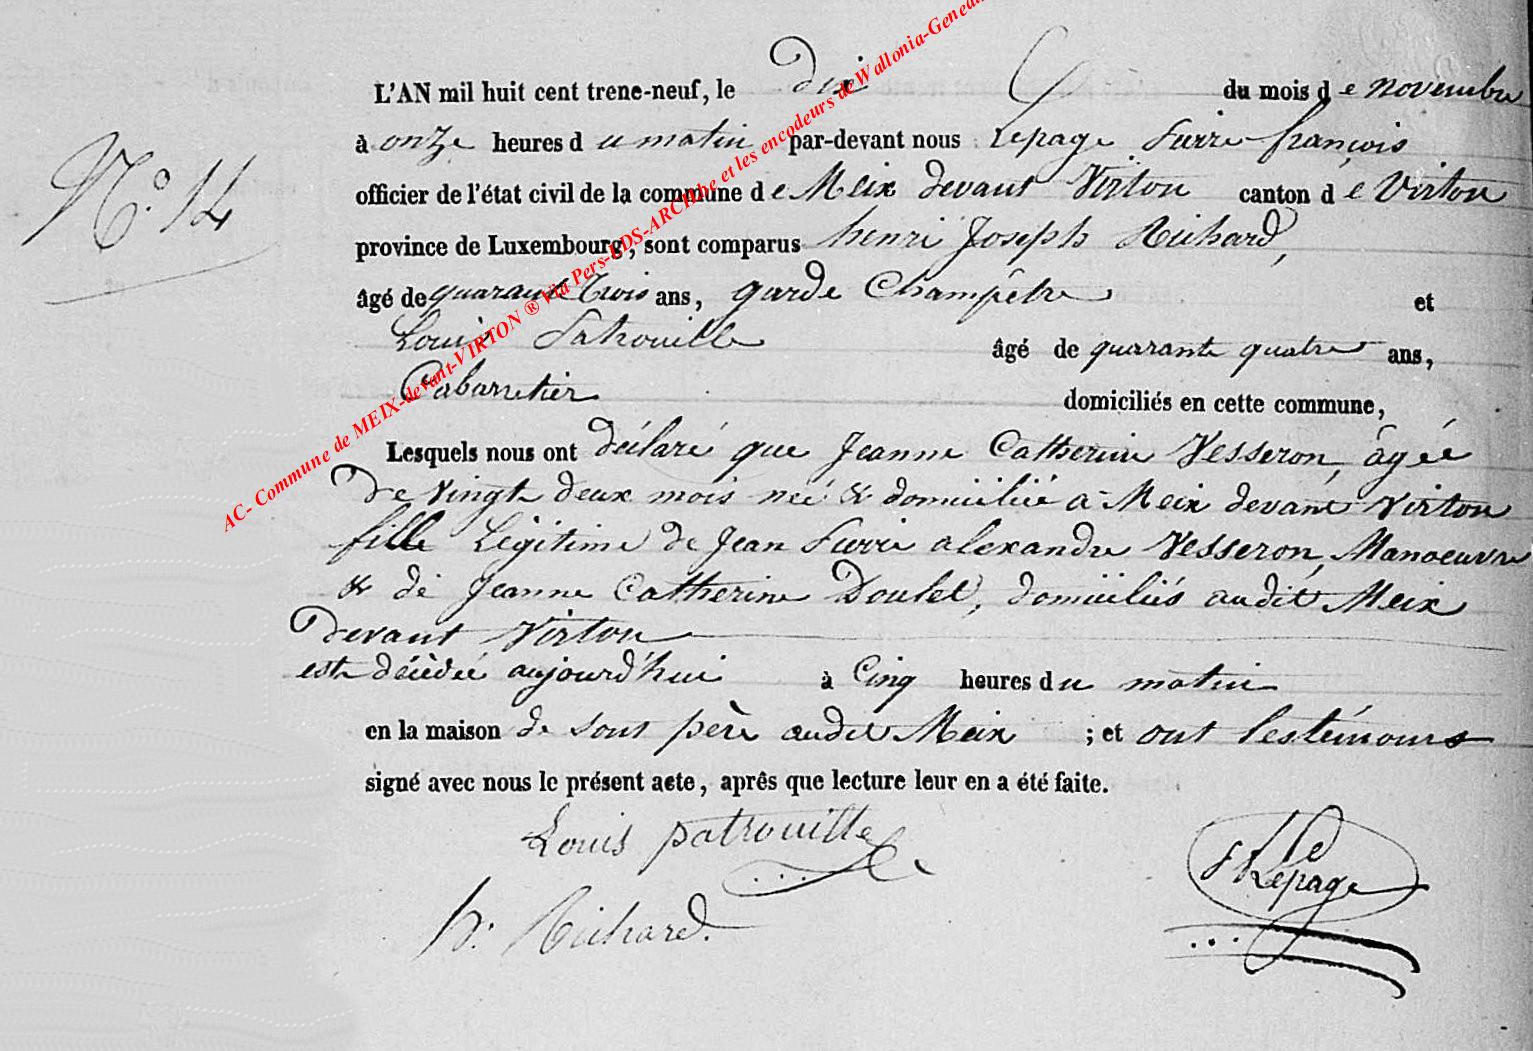 L'AN mil huit cent trene-neuf, le dix du mois de novembre
N.° 14
à onze heures du matin par-devant nous Lepage Pierre françois
officier de l'état civil de la commune de Meix devant Virton canton de Virton
province de Luxembourg, sont comparus henri Joseph Richard,
âgé de quarante trois ans, garde Champêtre et
Louis Patrouille âgé de quarante quatre ans,
Cabarretier domiciliés en cette commune,
Lesquels nous ont déclaré que Jeanne Catherine Vesseron, âgée
de vingt deux mois neé & domiciliée a Meix devant Virton
fille Légitime de Jean Pierre alexandre Vesseron, Manoeuvre
& de Jeanne Catherine Doulet, domiciliés audit Meix
Devant Virton
est décédée aujourd'hui à Cinq heures du matin
en la maison de sont père audit Meix ; et ont les témoins
signé avec nous le présent acte, après que lecture leur en a été faite.
Louis patrouille
Lepage
h. Richard.
AC- Commune de MEIX-devant-VIRTON ® Via Pers-EDS-ARCHive et les encodeurs de Wallonia-Genea